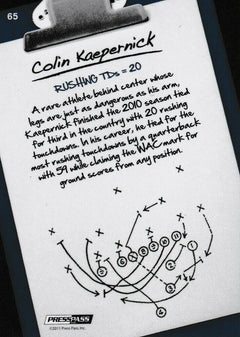 65
Colin Kaepernick
RUSHING TDs = 20
A rare athlete behind center whose
legs are just as dangerous as his arm,
Kaepernick finished the 2010 season tied
for third in the country with 20 rushing
touchdowns. In his career, he tied for the
most rushing touchdowns by a quarterback
with 59 while claiming the WAC mark for
ground scores from any position.
PRESSPASS
©2011 Press Pass, Inc.